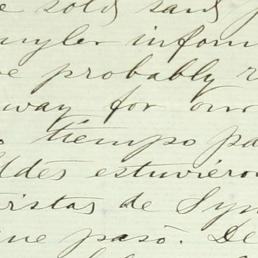 e sold said
angler inform
e probably r
way for our
tiempo pa
Udes estuviero
ristas de Syn
ue pasó. De